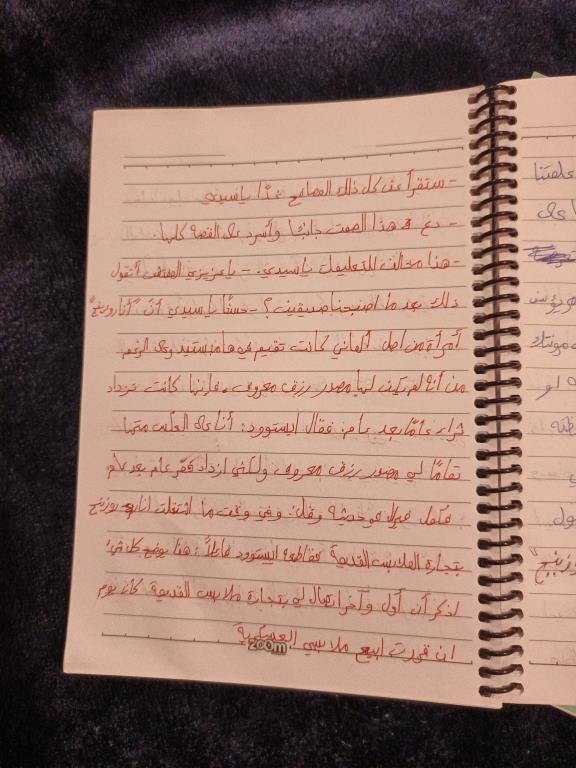 - ستقرأ عن كل ذلك الصباح غدًا ياسيدي
- دع هذا الصمت جانبًا وأسرد على القصة كلها.
- هذا مخالف للتعليمات ياسيدي. - ياعزيزي أتقول
ذلك بعد ما اصبحنا صديقين؟ - حسنًا ياسيدي أن "أنا روزينج"
أمرأة من اصل ألماني كانت تقيم في هامبستيد وعلى الرغم
من أنه لم يكن لها مصدر رزق معروف، فإنها كانت تزداد
ثراء عامًا بعد عام، فقال ايستوود: أنا على العكس منها
تمامًا لي مصدر رزق معروف ولكني ازداد فقر عام بعد عام،
حديثه وقال: وفي وقت ما اشتغلت انا روزينج
بتجارة الملابس القديمة فقاطعه ايستوود قائلاً: هذا يوضح كل شيء
اذكر أن أول وآخر اتصال لي بتجارة ملابس القديمة كان يوم
ان قررت ابيع ملابسي العسكرية
zoom
علقتنا
على
موتك
او
ول
روزينج"